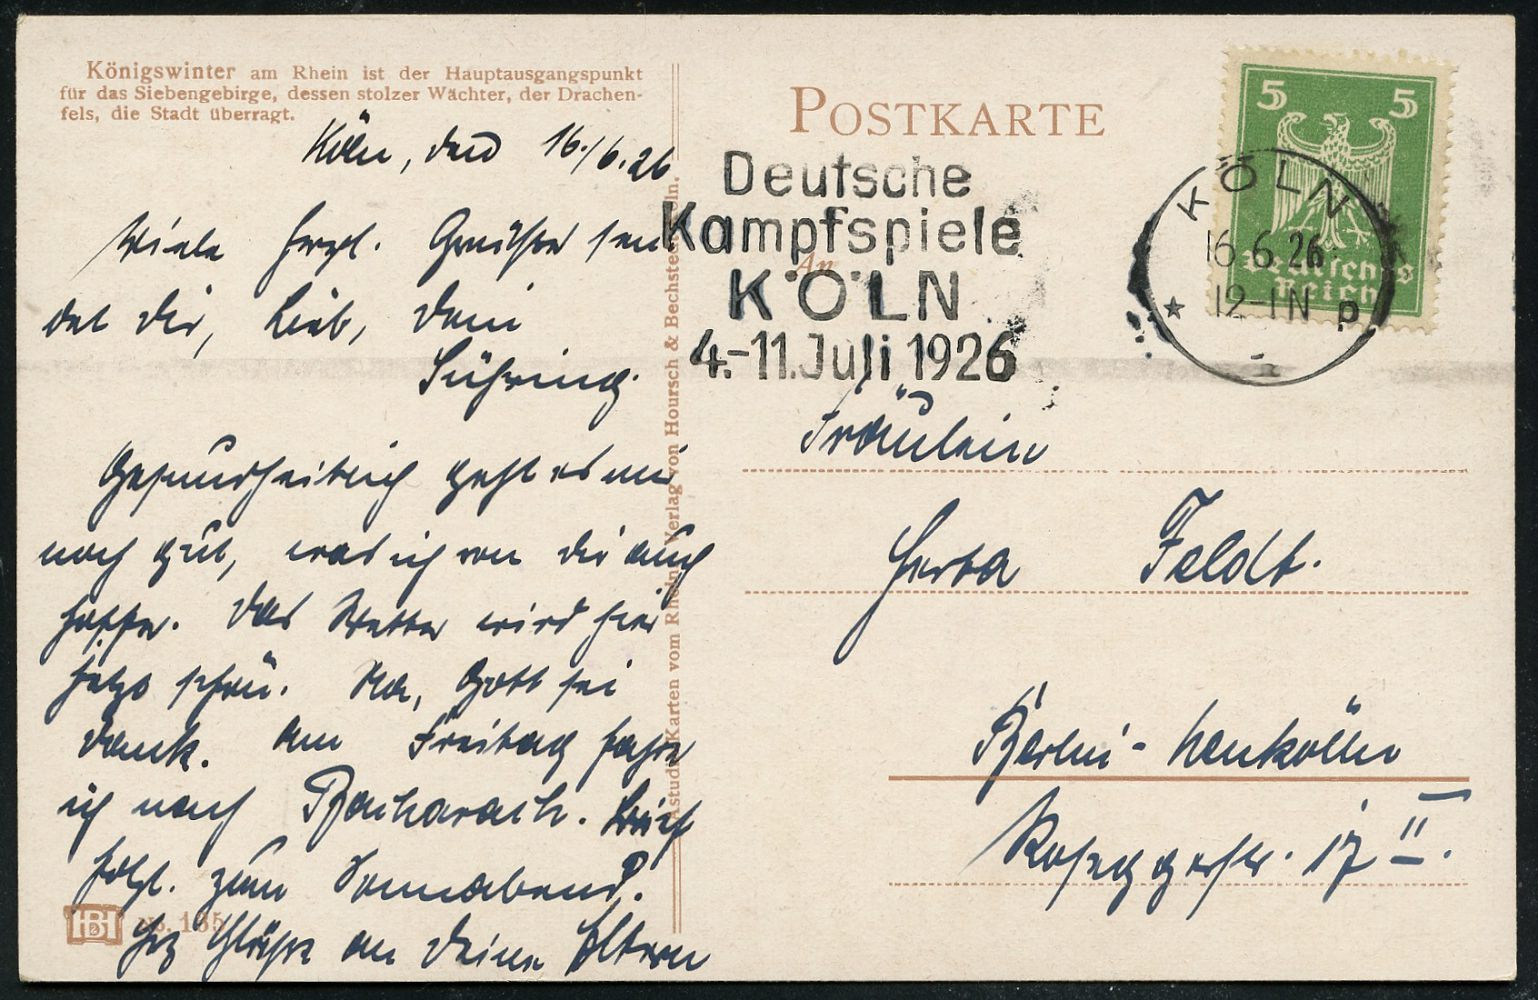 Königswinter am Rhein ist der Hauptausgangspunkt
für das Siebengebirge, dessen stolzer Wächter, der Drachen-
fels, die Stadt überragt.
Köln, den 16./6.26
Viele herzl. Grüße sen
det dir, Lieb, dein
Gesundheitlich geht es mir
noch gut, was ich von dir auch
hoffe. Das Wetter wird hier
jetzt schön. Na, Gott sei
dank. Am Freitag fahre
ich nach Bacharach. Brief
folgt zum Sonnabend.
Hrz Grüße an Deine Eltern
No. 185
Astudin-Karten vom Rhein. Verlag von Hoursch & Bechstedt, Köln.
POSTKARTE
Deutsche
Kampfspiele
KÖLN
4.-11.Juli 1926
An
5 5
Deutsches
Reich
KÖLN
16.6.26
12-1N
* p
Fräulein
Herta Feldt.
Berlin-Neukölln
Roseggerstr. 17 II.